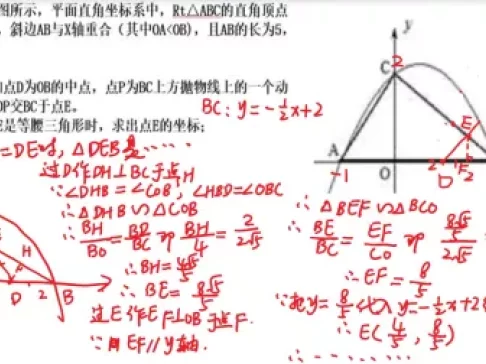 图所示，平面直角坐标系中，Rt△ABC的直角顶点
，斜边AB与X轴重合（其中OA<OB），且AB的长为5，
点D为OB的中点，点P为BC上方抛物线上的一个动
OP交BC于点E。
E是等腰三角形时，求出点E的坐标；
BC：y=-½x+2
=DE时，△DEB是……
过D作DH⊥BC于点H
∵∠DHB=∠COB，∠HBD=∠OBC
∴△DHB∽△COB
∴BH/BO=BD/BC 即 BH/4=2/2√5
∴BH=4√5/5
∴BE=8√5/5
过E作EF⊥OB于点F.
∵EF//y轴.
∴△BEF∽△BCO
∴BE/BC=EF/CO 即
∴EF=8/5
∴把y=8/5代入y=-½x+2
∴E(4/5, 8/5)
∴……
y
C
2
E
A
-1
O
2
D
F
H
F
D
2
B